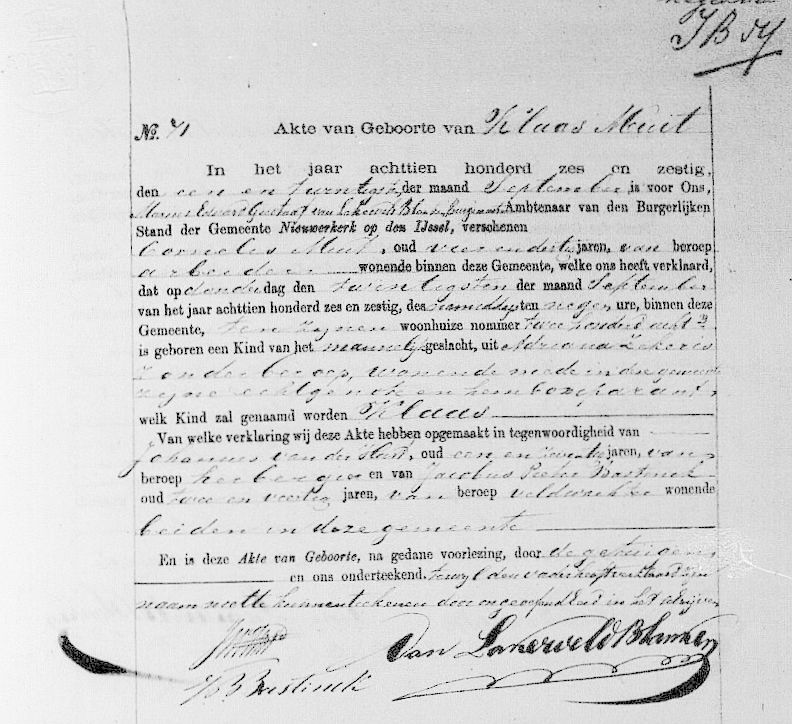 No. 71 Akte van Geboorte van Klaas Muit
In het jaar achttien honderd zes en zestig,
den een en twintigsten der maand September is voor Ons,
Ambtenaar van den Burgerlijken
Stand der Gemeente Nieuwerkerk op den IJssel, verschenen
Cornelis Muit, oud vier en dertig jaren, van beroep
arbeider wonende binnen deze Gemeente, welke ons heeft verklaard,
dat op donderdag den twintigsten der maand September
van het jaar achttien honderd zes en zestig, des namiddags ten negen ure, binnen deze
Gemeente, ten zijnen woonhuize nommer twee honderd acht
is geboren een Kind van het mannelijk geslacht, uit Adriana
zonder beroep, wonende mede in deze gemeente
zijne echtgenoote en hem
welk Kind zal genaamd worden Klaas
Van welke verklaring wij deze Akte hebben opgemaakt in tegenwoordigheid van
Johannes van der, oud een en jaren, van
beroep herbergier en van Jacobus Pieter
oud twee en veertig jaren, van beroep veldwachter wonende
beiden in deze gemeente
En is deze Akte van Geboorte, na gedane voorlezing, door de getuigen
en ons onderteekend. terwyl den vader heeft verklaard zyn
naam niet te kunnen teekenen door ongeoefendheid in het schrijven
Van Lakerveld Blanken